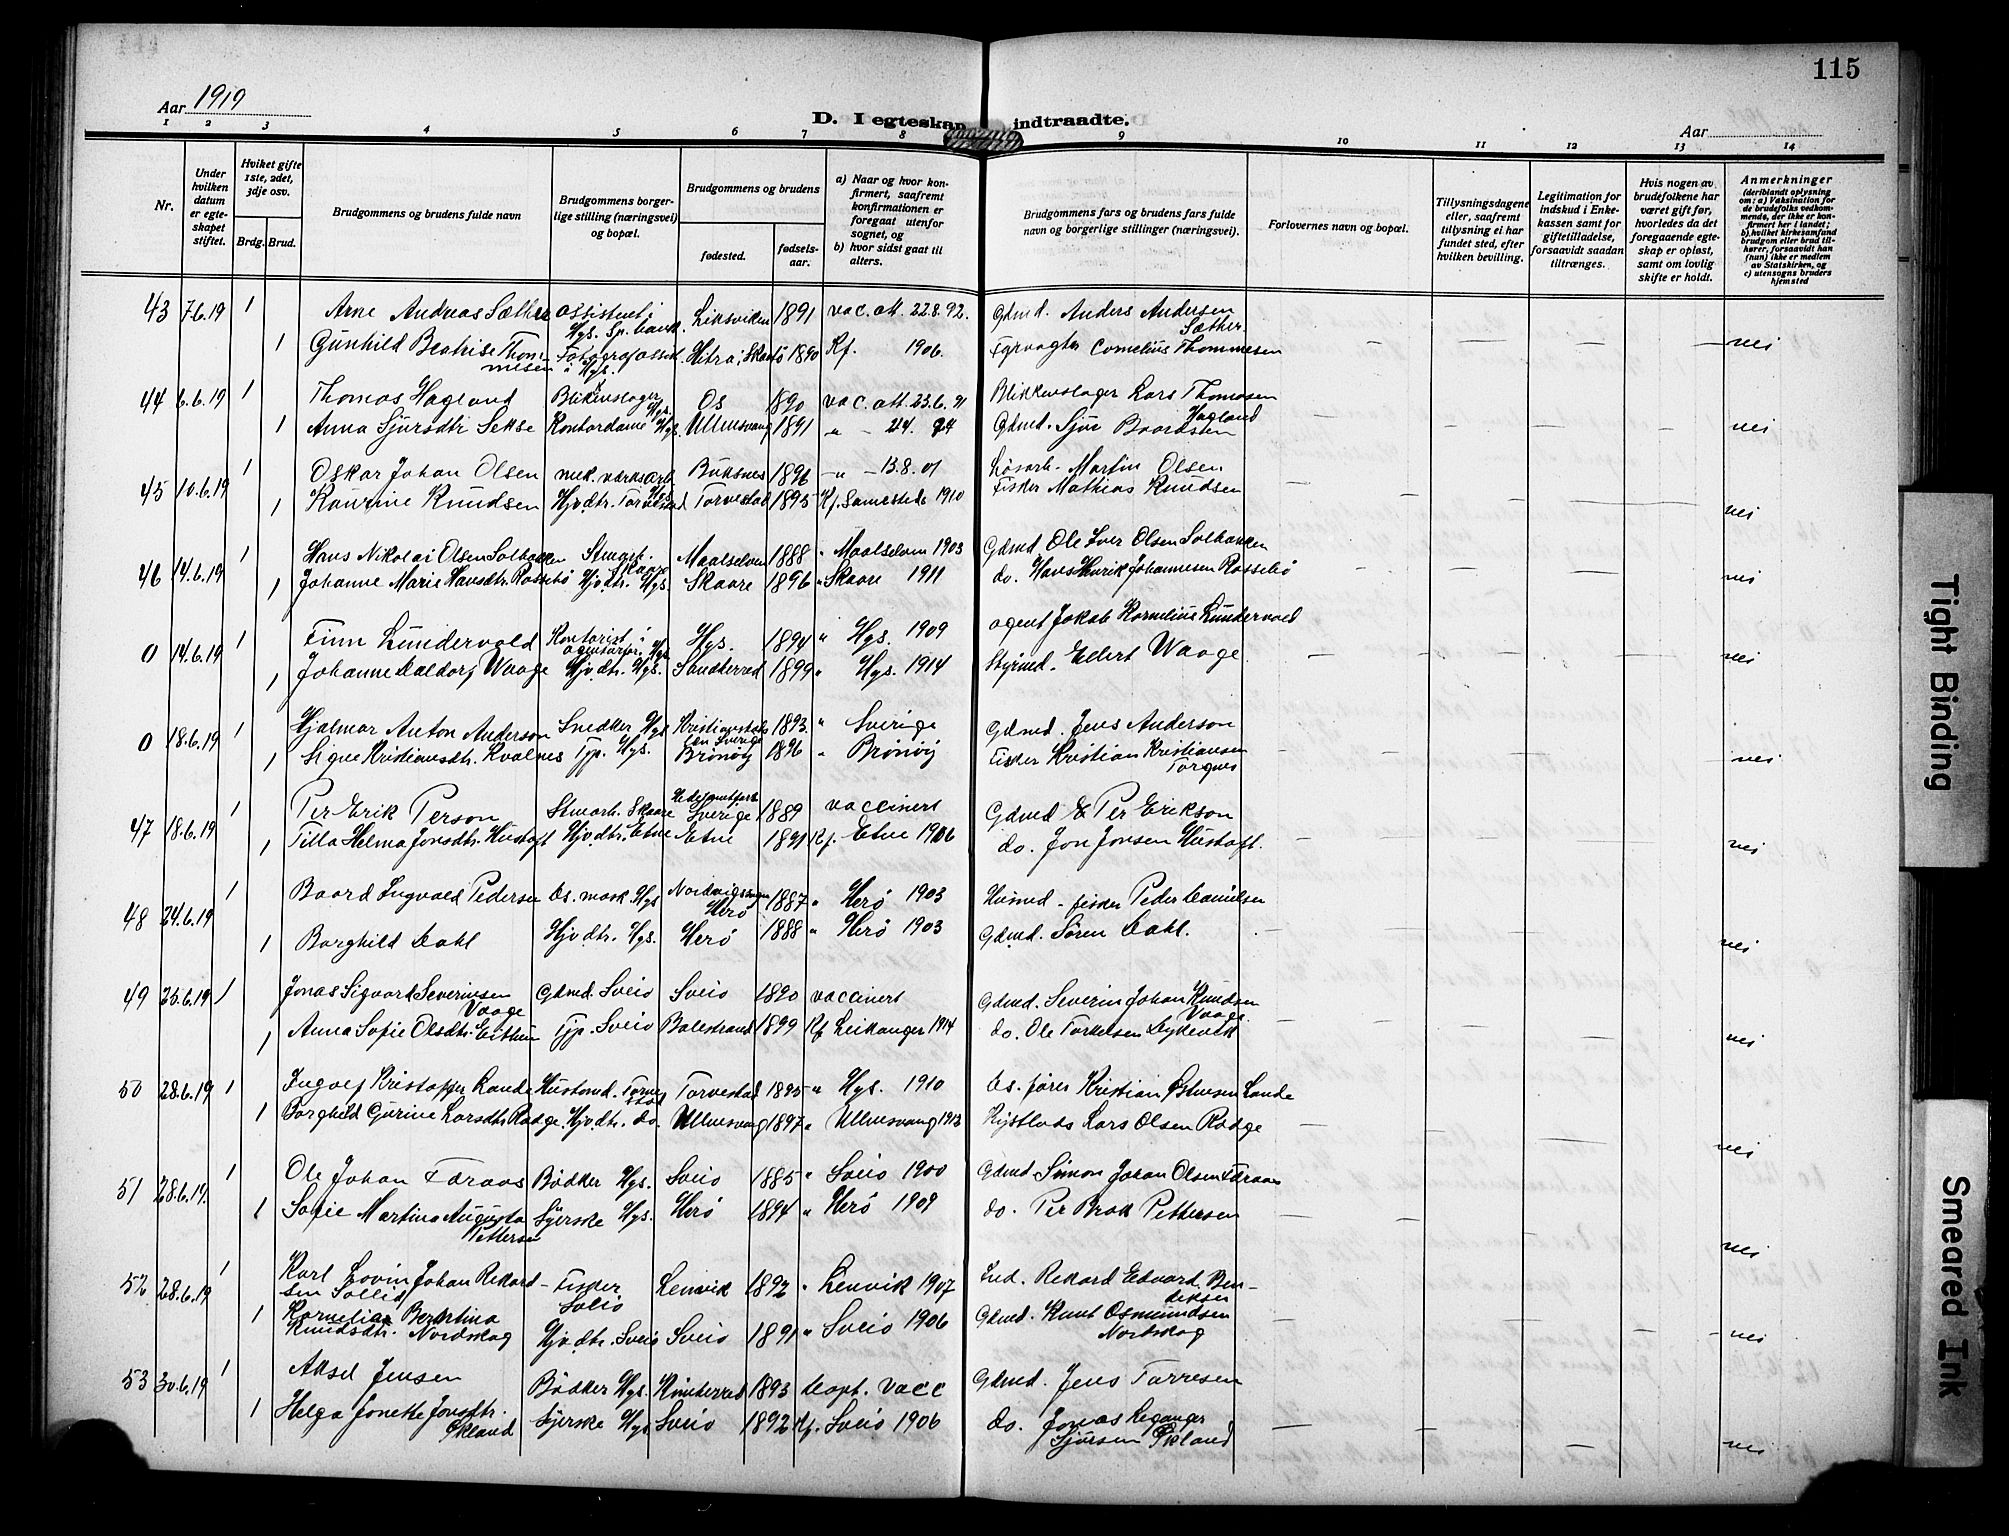 115
Aar 1919
D. I egteskap indtraadte.
Aar
1 2 3 4 5 6 7 8 9 10 11 12 13 14
Nr.
Under hvilken datum er egteskapet stiftet.
Hvilket gifte 1ste, 2det, 3dje osv.
Brdg. Brud.
Brudgommens og brudens fulde navn
Brudgommens borgerlige stilling (næringsvei) og bopæl.
Brudgommens og brudens
fødested.
fødselsaar.
a) Naar og hvor konfirmert, saafremt konfirmationen er foregaat utenfor sognet, og
b) hvor sidst gaat til alters.
Brudgommens fars og brudens fars fulde navn og borgerlige stillinger (næringsvei).
Forlovernes navn og bopæl.
Tillysningsdagene eller, saafremt tillysning ei har fundet sted, efter hvilken bevilling.
Legitimation for indskud i Enkekassen samt for giftetilladelse, forsaavidt saadan tiltrænges.
Hvis nogen av brudefolkene har været gift før, hvorledes da det foregaaende egteskap er opløst, samt om lovlig skifte er holdt.
Anmerkninger
(deriblandt oplysning om: a) Vaksination for de brudefolks vedkommende, der ikke er konfirmert her i landet; b) hvilket kirkesamfund brudgom eller brud tilhører, forsaavidt han (hun) ikke er medlem av Statskirken, og c) utensogns bruders hjemsted
43 7.6.19 1 Arne Andreas Sæther assistent i Hgs. Sp. bank. Liksviken 1891 vac. att. 22.8.92. Gdmd. Anders Andersen Sæther.
1 Gunhild Beatrise Thommesen Fotografassist. i Hgs. Hitra, 1890 Kf. 1906. Fyrvogter Cornelius Thommesen nei
44 6.6.19 1 Thomas Hagland Blikkenslager Hgs. Os 1890 vac. att. 23.6.91 Blikkenslager Lars Thomasen Hagland
1 Anna Sjursdtr Sekse Kontordame Hgs. Ullensvang 1891 " - Gdmd. Sjur Baardsen nei
45 10.6.19 1 Oskar Johan Olsen mek. værksarb. Hgs Buksnes 1896 " - 13.8.01 Løsarb. Martin Olsen
1 Kaurine Knudsen Hjv.dtr. Torvestad Torvestad 1895 Kf. Sammesteds 1910 Fisker Mathias Knudsen nei
46 14.6.19 1 Hans Nikolai Olsen Solbakken Skaare Maalselven 1888 " Maalselven 1903 Gdmd Ole Iver Olsen Solbakken
1 Johanne Marie Hansdtr. Rossebø Hjv.dtr. Hgs. Skaare 1896 " Skaare 1911 do. Hans Henrik Johannesen Rossebø nei
0 14.6.19 1 Finn Lundervold Kontorist i Hgs Hgs. 1894 " Hgs. 1909 agent Jakob Kornelius Lundervold
1 Johanne Waage Hjv.dtr. Hgs. Sandherred 1899 " Hgs. 1914 Styrmd. Edert Waage nei
0 18.6.19 1 Hjalmar Anton Anderson Snedker Hgs Kristianstads len Sverige 1893 " Sverige Gdmd. Jens Anderson
1 Signe Kristiansdtr. Kvalnes Tjp. Hgs. Brønøy 1896 " Brønøy Fisker Kristian Kristiansen Torgnes nei
47 18.6.19 1 Per Erik Person Skaare Sverige 1889 vaccinert Gdmd Per Erikson
1 Tilla Helma Jonsdtr. Hustoft Hjv.dtr. Etne Etne 1891 Kf. Etne 1906 do. Jon Jonsen Hustoft. nei
48 24.6.19 1 Baard Ingvald Pedersen Ds. mask. Hgs Herø 1887 " Herø 1903 Husmd - fisker Peder Danielsen
1 Borghild Dahl Hjv.dtr. Hgs. Herø 1888 " Herø 1903 Gdmd. Søren Dahl. nei
49 25.6.19 1 Jonas Sigvard Severinsen Vaage Gdmd. Sveio Sveio 1890 vaccinert Gdmd. Severin Johan Knudsen Vaage
1 Anna Sofie Olsdtr. Eithun Tjp. Sveio Balestrand 1899 Kf Leikanger 1914 do. Ole Torkelsen nei
50 28.6.19 1 Ingolf Kristoffer Lande Husmd. Torvestad Torvestad 1895 " Hgs. 1910 Ds. fører Kristian Østensen Lande
1 Borghild Gurine Larsdtr. Rødge Hjv.dtr. do. Ullensvang 1897 " Ullensvang 1913 Kystlods Lars Olsen Rødge nei
51 28.6.19. 1 Ole Johan Færaas Bødker Hgs. Sveio 1885 " Sveio 1900 Gdmd. Simon Johan Olsen Færaas
1 Sofie Martina Augusta Pettersen Syerske Hgs. Herø 1894 " Herø 1909 do. Per Brok Pettersen nei
52 28.6.19 1 Karl Lovin Johan Rekardsen Sollid Fisker Sveio Lenvik 1892 " Lenvik 1907 Ind. Rekard Edvard Bendiksen
1 Kornelia Bertina Knudsdtr. Nordskog Hjv.dtr. Sveio Sveio 1891 " Sveio 1906 Gdmd. Knut Osmundsen Nordskog nei
53 30.6.19 1 Aksel Jensen Bødker Hgs. Kvinherred 1893 vacc Gdmd. Jens Torresen
1 Helga Jonette Jonsdtr. Økland Syerske Hgs Sveio 1892 Kf. Sveio 1906 do. Jonas Leganger Sjursen Økland nei
Tight Binding
Smeared Ink